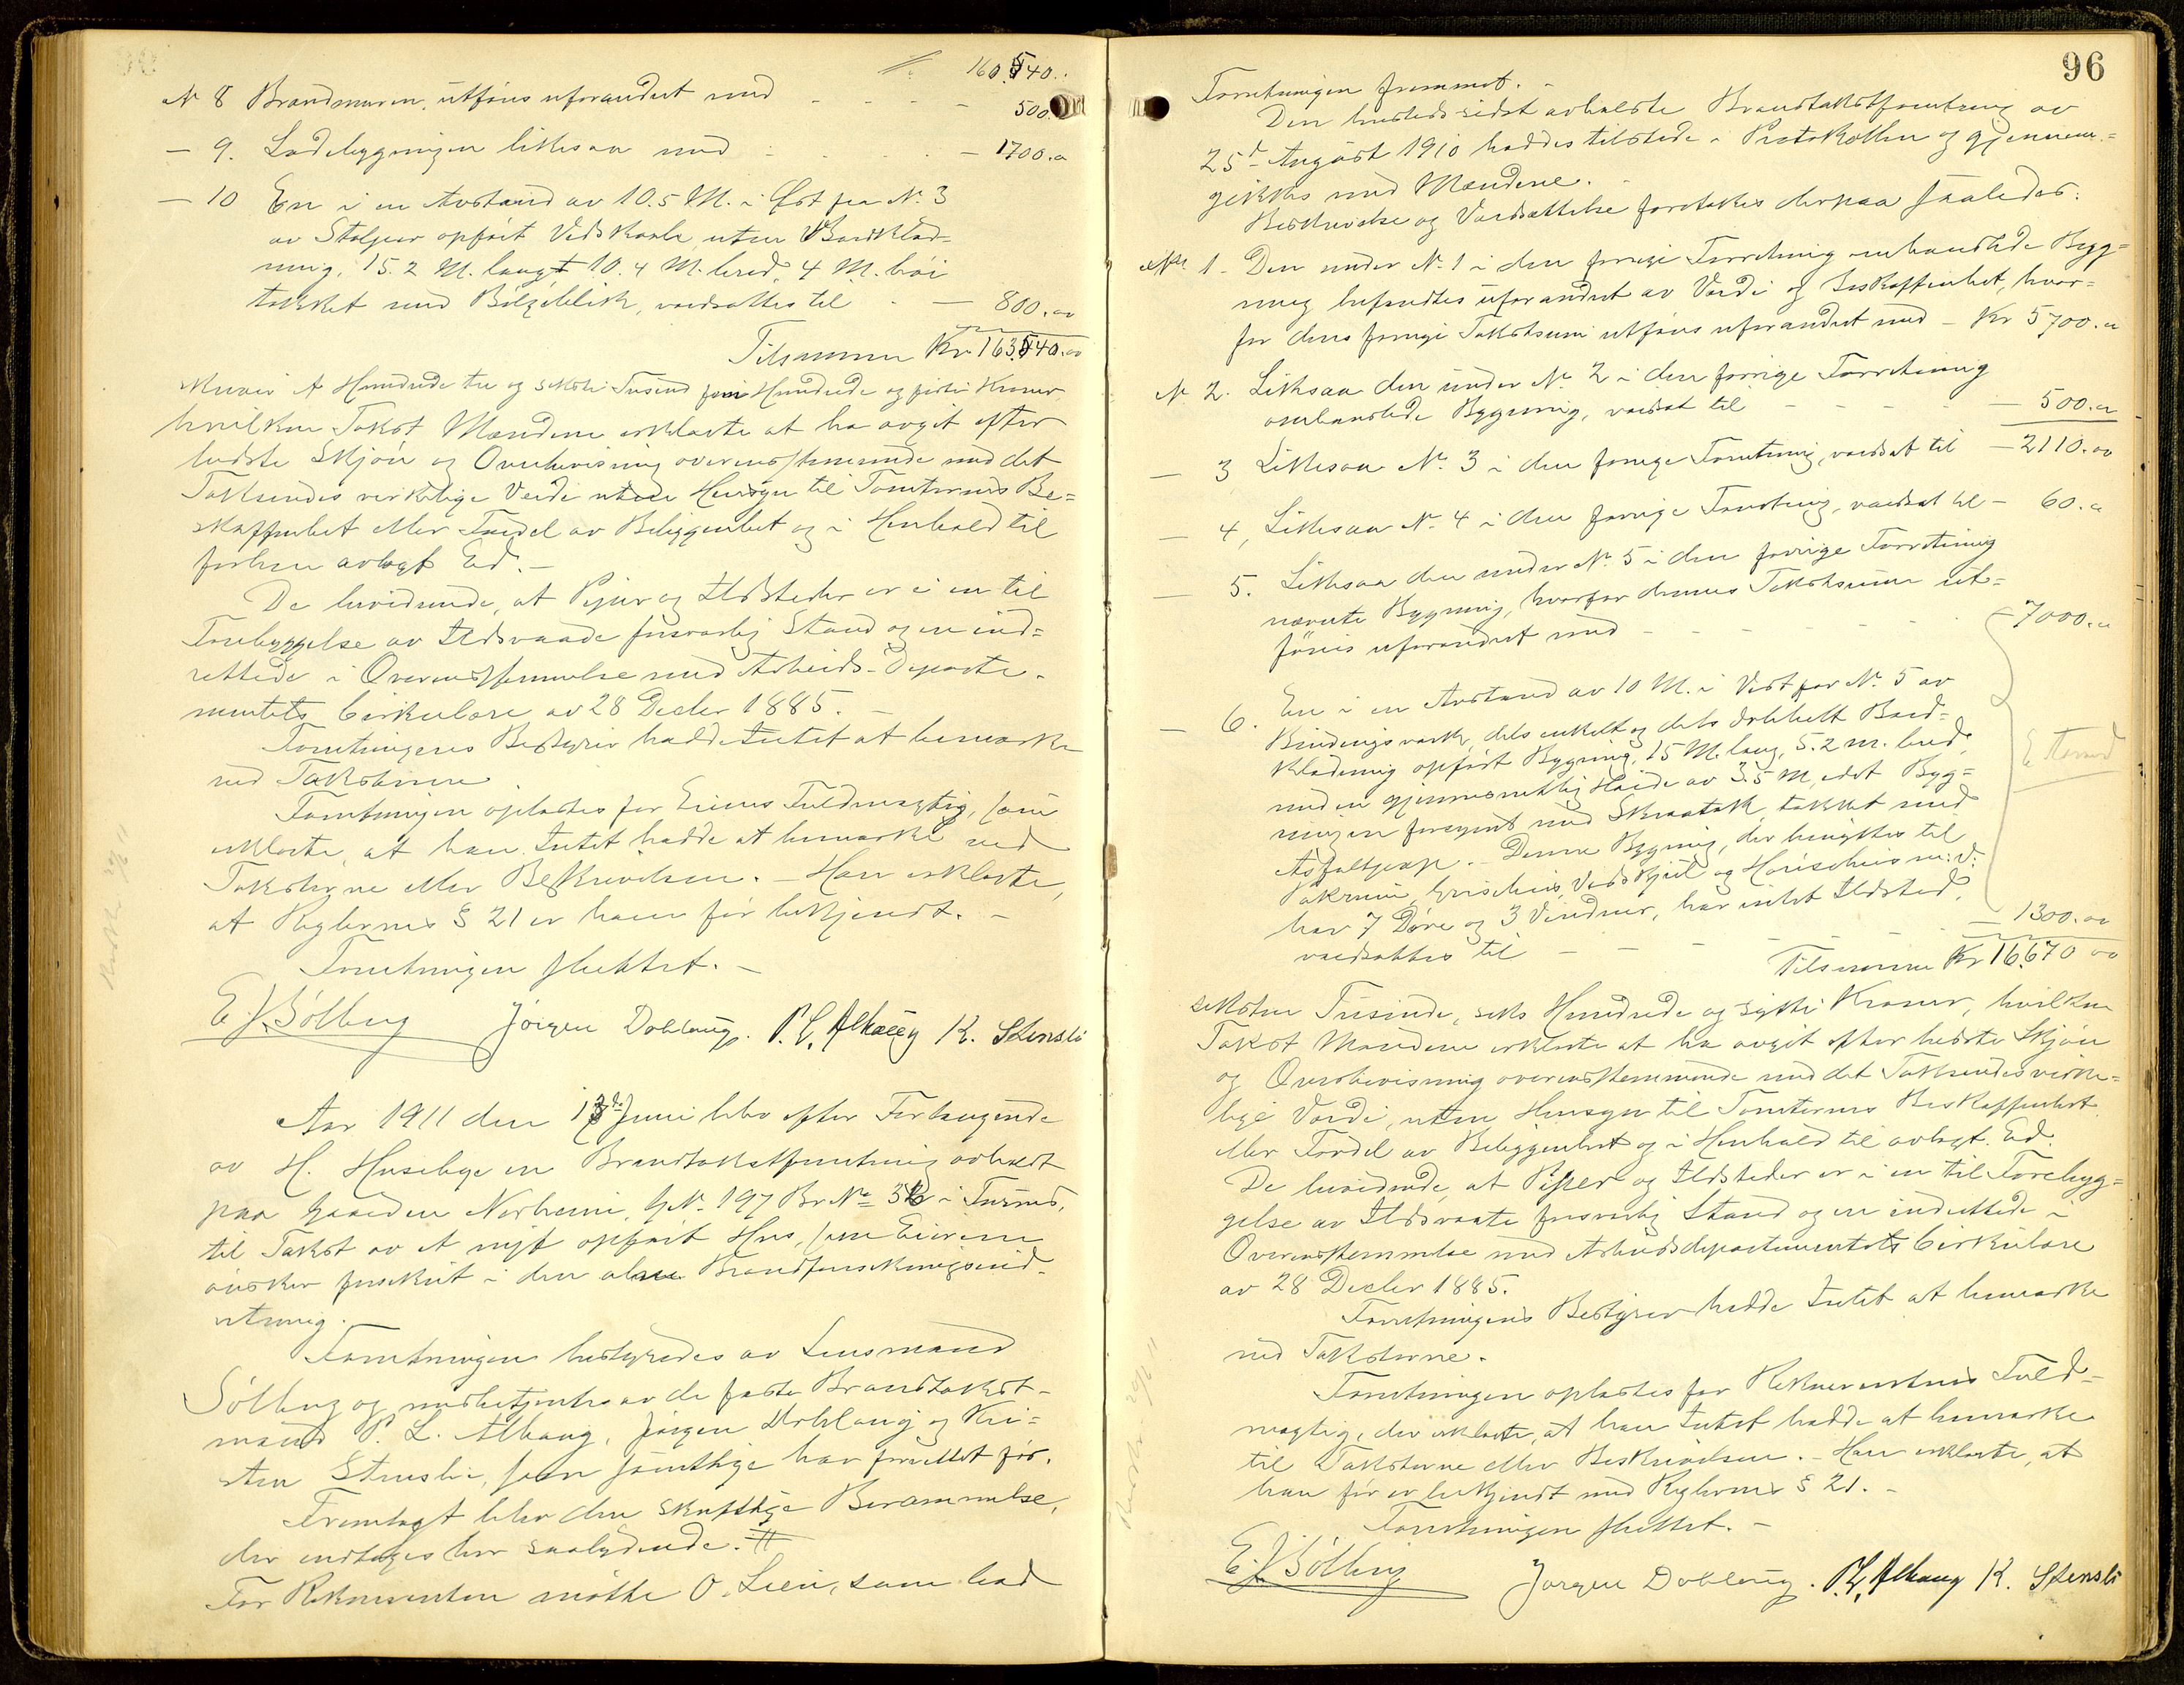 Kr. 160.540..
№ 8 Brandmuren, utföres uforandret med - - - - 500.00
— 9. Ladebygningen likesaa med - - - — 1700.00
— 10 En i en Avstand av 10.5 M. i Øst fra № 3
av Stolper opfört Vedskaale, uten Bordklæd-
ning, 15.2 M. langt 10.4 M. bred, 4 M. höi
tækket med Bölgeblik, værdsættes til - — 800.00
Tilsammen Kr. 163.540.00
skriver Et Hundrede tre og seksti Tusend fem Hundrede og förti Kroner,
hvilken Takst Mændene erklærte at ha avgit efter
bedste Skjön og Overbevisning overensstemmende med det
Taksendes virkelige Værdi uten Hensyn til Tomternes Be-
skaffenhet eller Fordel av Beliggenhet og i Henhold til
forhen avlagt Ed. —
De bevidnede, at Piper og Ildsteder er i en til
Forebyggelse av Ildsvaade forsvarlig Stand og er ind-
rettede i Overensstemmelse med Arbeids-Departe-
mentets Cirkulære av 28 Decbr 1885. —
Forretningens Bestyrer hadde Intet at bemærke
ved Taksterne.
Forretningen oplæstes for Eierens Fuldmægtig, som
erklærte, at han Intet hadde at bemærke ved
Taksterne eller Beskrivelsen. — Han erklærte,
at Reglernes § 21 er ham för bekjendt. —
Forretningen sluttet. —
E. J. Sölberg Jörgen Dobloug. P. L. Alhaug K. Stensli
Aar 1911 den 13de Juni blev efter Forlangende
av H. Huseby en Brandtakstforretning avholdt
paa Gaarden Norheim, G№ 197 Br№ 36 i Furnes,
til Takst av et nyt opfört Hus, som Eieren
önsker forsikret i den alm. Brandforsikringsind-
retning.
Forretningen bestyredes av Lensmand
Sölberg og medbetjentes av de faste Brandtakst-
mænd P. L. Alhaug, Jörgen Doblaug og Kri-
sten Stensli, som samtlige har forrettet för.
Fremlagt blev den skriftlige Berammelse,
der indtages her saalydende. #
For Rekvirenten mötte O. Lien, som bad
96
Forretningen fremmet. —
Den herstedssidst avholdte Brandtakstforretning av
25de August 1910 haddes tilstede i Protokollen og gjennem-
gikkes med Mændene. —
Beskrivelse og Værdsættelse foretokes derpaa saaledes:
№ 1. Den under № 1 i den forrige Forretning omhandlede Byg-
ning befandtes uforandret av Værdi og Beskaffenhet, hvor-
for dens forrige Takstsum utföres uforandret med — Kr 5700.00
№ 2. Likesaa den under № 2 i den forrige Forretning
omhandlede Bygning, værdsat til - - - - — 500.00
— 3 Likesaa № 3 i den forrige Forretning, værdsat til — 2110.00
— 4, Likesaa № 4 i den forrige Forretning, værdsat til — 60.00
— 5. Likesaa den under № 5 i den forrige Forretning
nævnte Bygning, hvorfor dennes Takstsum ut-
föres uforandret med - - - - - — 7000.00
— 6. En i en Avstand av 10 M. i Vest for № 5 av
Bindingsverk, dels enkelt og dels dobbelt Bord-
klædning opfört Bygning, 15 M. lang, 5.2 m. bred,
med en gjennemsnitlig Höide av 3.5 M, idet Byg-
ningen forsynet med Skraatak, tækket med
Asfaltpap. — Denne Bygning, der benyttes til
Vakrum, Grisehus, Vedskjul og Hönsehus m: v.
har 7 Döre og 3 Vinduer, har intet Ildsted,
værdsættes til - - - - - — 1300.00
Tilsammen Kr 16.670 00
seksten Tusinde, seks Hundrede og sytti Kroner, hvilken
Takst Mændene erklærte at ha avgit efter bedste Skjön
og Overbevisning overensstemmende med det Taksendes virke-
lige Værdi, uten Hensyn til Tomternes Beskaffenhet
eller Fordel av Beliggenhet og i Henhold til avlagt Ed.
De bevidnede, at Piper og Ildsteder er i en til Forebyg-
gelse av Ildsvaate forsvarlig Stand og er indrettede i
Overensstemmelse med Arbeidsdepartementets Cirkulære
av 28 Decbr 1885.
Forretningens Bestyrer hadde Intet at bemærke
ved Taksterne.
Forretningen oplæstes for Rekvirentens Fuld-
mægtig, der erklærte, at han Intet hadde at bemærke
til Taksterne eller Beskrivelsen. — Han erklærte, at
han för er bekjendt med Reglernes § 21. —
Forretningen sluttet. —
E. J. Sölberg Jörgen Doblaug. P. L. Alhaug K. Stensli